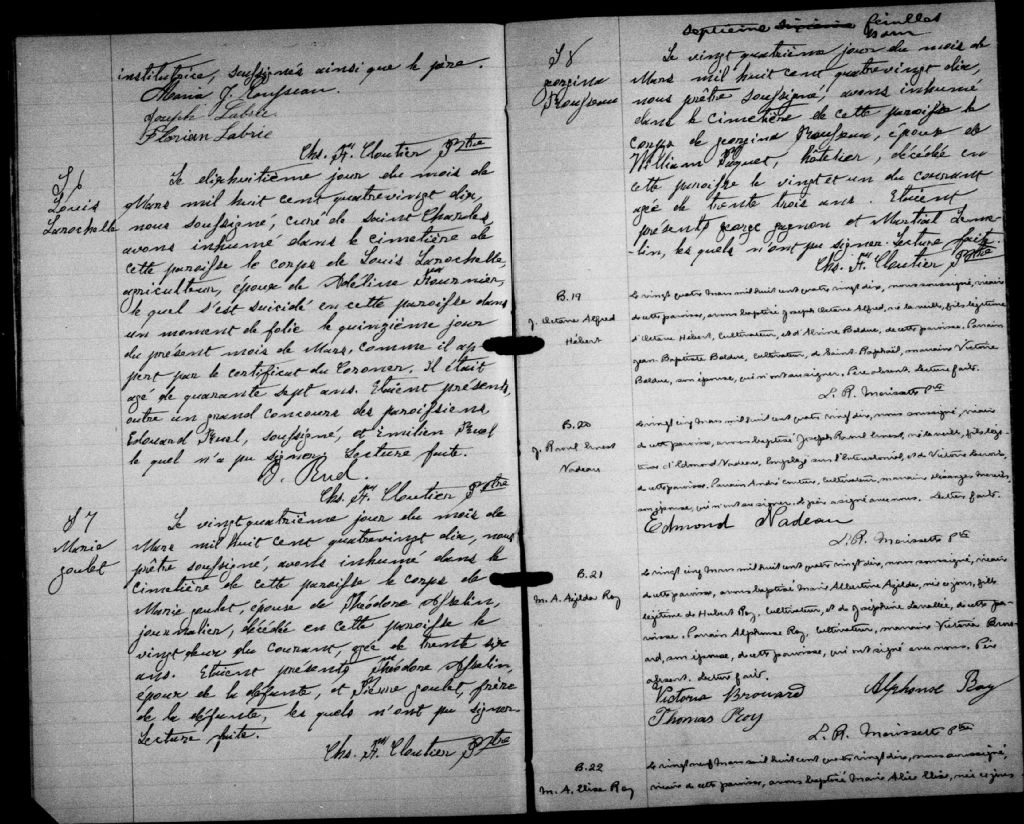 institutrice, soussignés ainsi que le père.
Maria J. Rousseau
Joseph Labrie
Florian Labrie
Chs. Fr. Cloutier Ptre
S 6
Louis
Larochelle
Le dixhuitième jour du mois de
Mars mil huit cent quatrevingt dix,
nous soussigné, curé de Saint Charles
avons inhumé dans le cimetière de
cette paroisse le corps de Louis Larochelle,
agriculteur, époux de Adeline Fournier,
lequel s'est suicidé en cette paroisse dans
un moment de folie le quinzième jour
du présent mois de Mars, comme il ap
pert par le certificat du Coroner. Il était
agé de quarante sept ans. Etaient présents,
outre un grand concours des paroissiens,
Edouard Ruel, soussigné, et Emilien Ruel
le quel n'a pu signer. Lecture faite.
Ruel
Chs. Fr. Cloutier Ptre
S 7
Marie
goulet
Le vingt quatrième jour du mois de
Mars mil huit cent quatrevingt dix, nous
prêtre soussigné, avons inhumé dans le
cimetière de cette paroisse le corps de
Marie goulet, épouse de Théodore Asselin,
journalier, décédée en cette paroisse le
vingt deux du courant, agée de trente six
ans. Etaient présents Théodore Asselin,
époux de la défunte, et Pierre goulet, frère
de la défunte, les quels n'ont pu signer.
Lecture faite.
Chs. Fr. Cloutier Ptre
Septième Dixième feuillet
S 8
georgina
Rousseau
Le vingt quatrième jour du mois de
Mars mil huit cent quatrevingt dix,
nous prêtre soussigné, avons inhumé
dans le cimetière de cette paroisse le
corps de georgina Rousseau, épouse de
William Paquet, hôtelier, décédée en
cette paroisse le vingt et un du courant
agée de trente trois ans. Etaient
présents george gagnon et Martial Leme-
lin, les quels n'ont pu signer. Lecture faite.
Chs. Fr. Cloutier Ptre
B. 19
J. Octave Alfred
Hébert
Le vingt quatre Mars mil huit cent quatre vingt dix, nous soussigné, vicaire
de cette paroisse, avons baptisé Joseph Octave Alfred, né la veille, fils légitime
d'Octave Hébert, Cultivateur, et d'Alvine Bolduc, de cette paroisse. Parrain
Jean Baptiste Bolduc, cultivateur, de Saint Raphaël, marraine Victoire
Bolduc, son épouse, qui n'ont su signer. Père absent. Lecture faite.
L. R. Morissette Ptre
B. 20
J. Raoul Ernest
Nadeau
Le vingt cinq Mars mil huit cent quatre vingt dix, nous soussigné, vicaire
de cette paroisse, avons baptisé Joseph Raoul Ernest, né la veille, fils légi-
time d'Edmond Nadeau, Employé sur l'Intercolonial, et de Victoria
de cette paroisse. Parrain André Couture, Cultivateur, marraine
son épouse, qui n'ont su signer. Le père a signé avec nous. Lecture faite.
Edmond Nadeau
L. R. Morissette Ptre
B. 21
M. A. Azilda Roy
Le vingt cinq Mars mil huit cent quatre vingt dix, nous soussigné, vicaire
de cette paroisse, avons baptisé Marie Albertine Azilda, née ce jour, fille
légitime de Hubert Roy, Cultivateur, et de Joséphine Lavallée, de cette pa-
roisse. Parrain Alphonse Roy, Cultivateur, marraine Victoria Brou-
ard, son épouse, de cette paroisse, qui ont signé avec nous. Père
absent. Lecture faite.
Victoria Brouard Alphonse Roy
Thomas Roy
L. R. Morissette Ptre
B. 22
M. A. Elise Roy
Le vingt neuf Mars mil huit cent quatre vingt dix, nous soussigné,
vicaire de cette paroisse, avons baptisé Marie Alice Elise, née ce jour